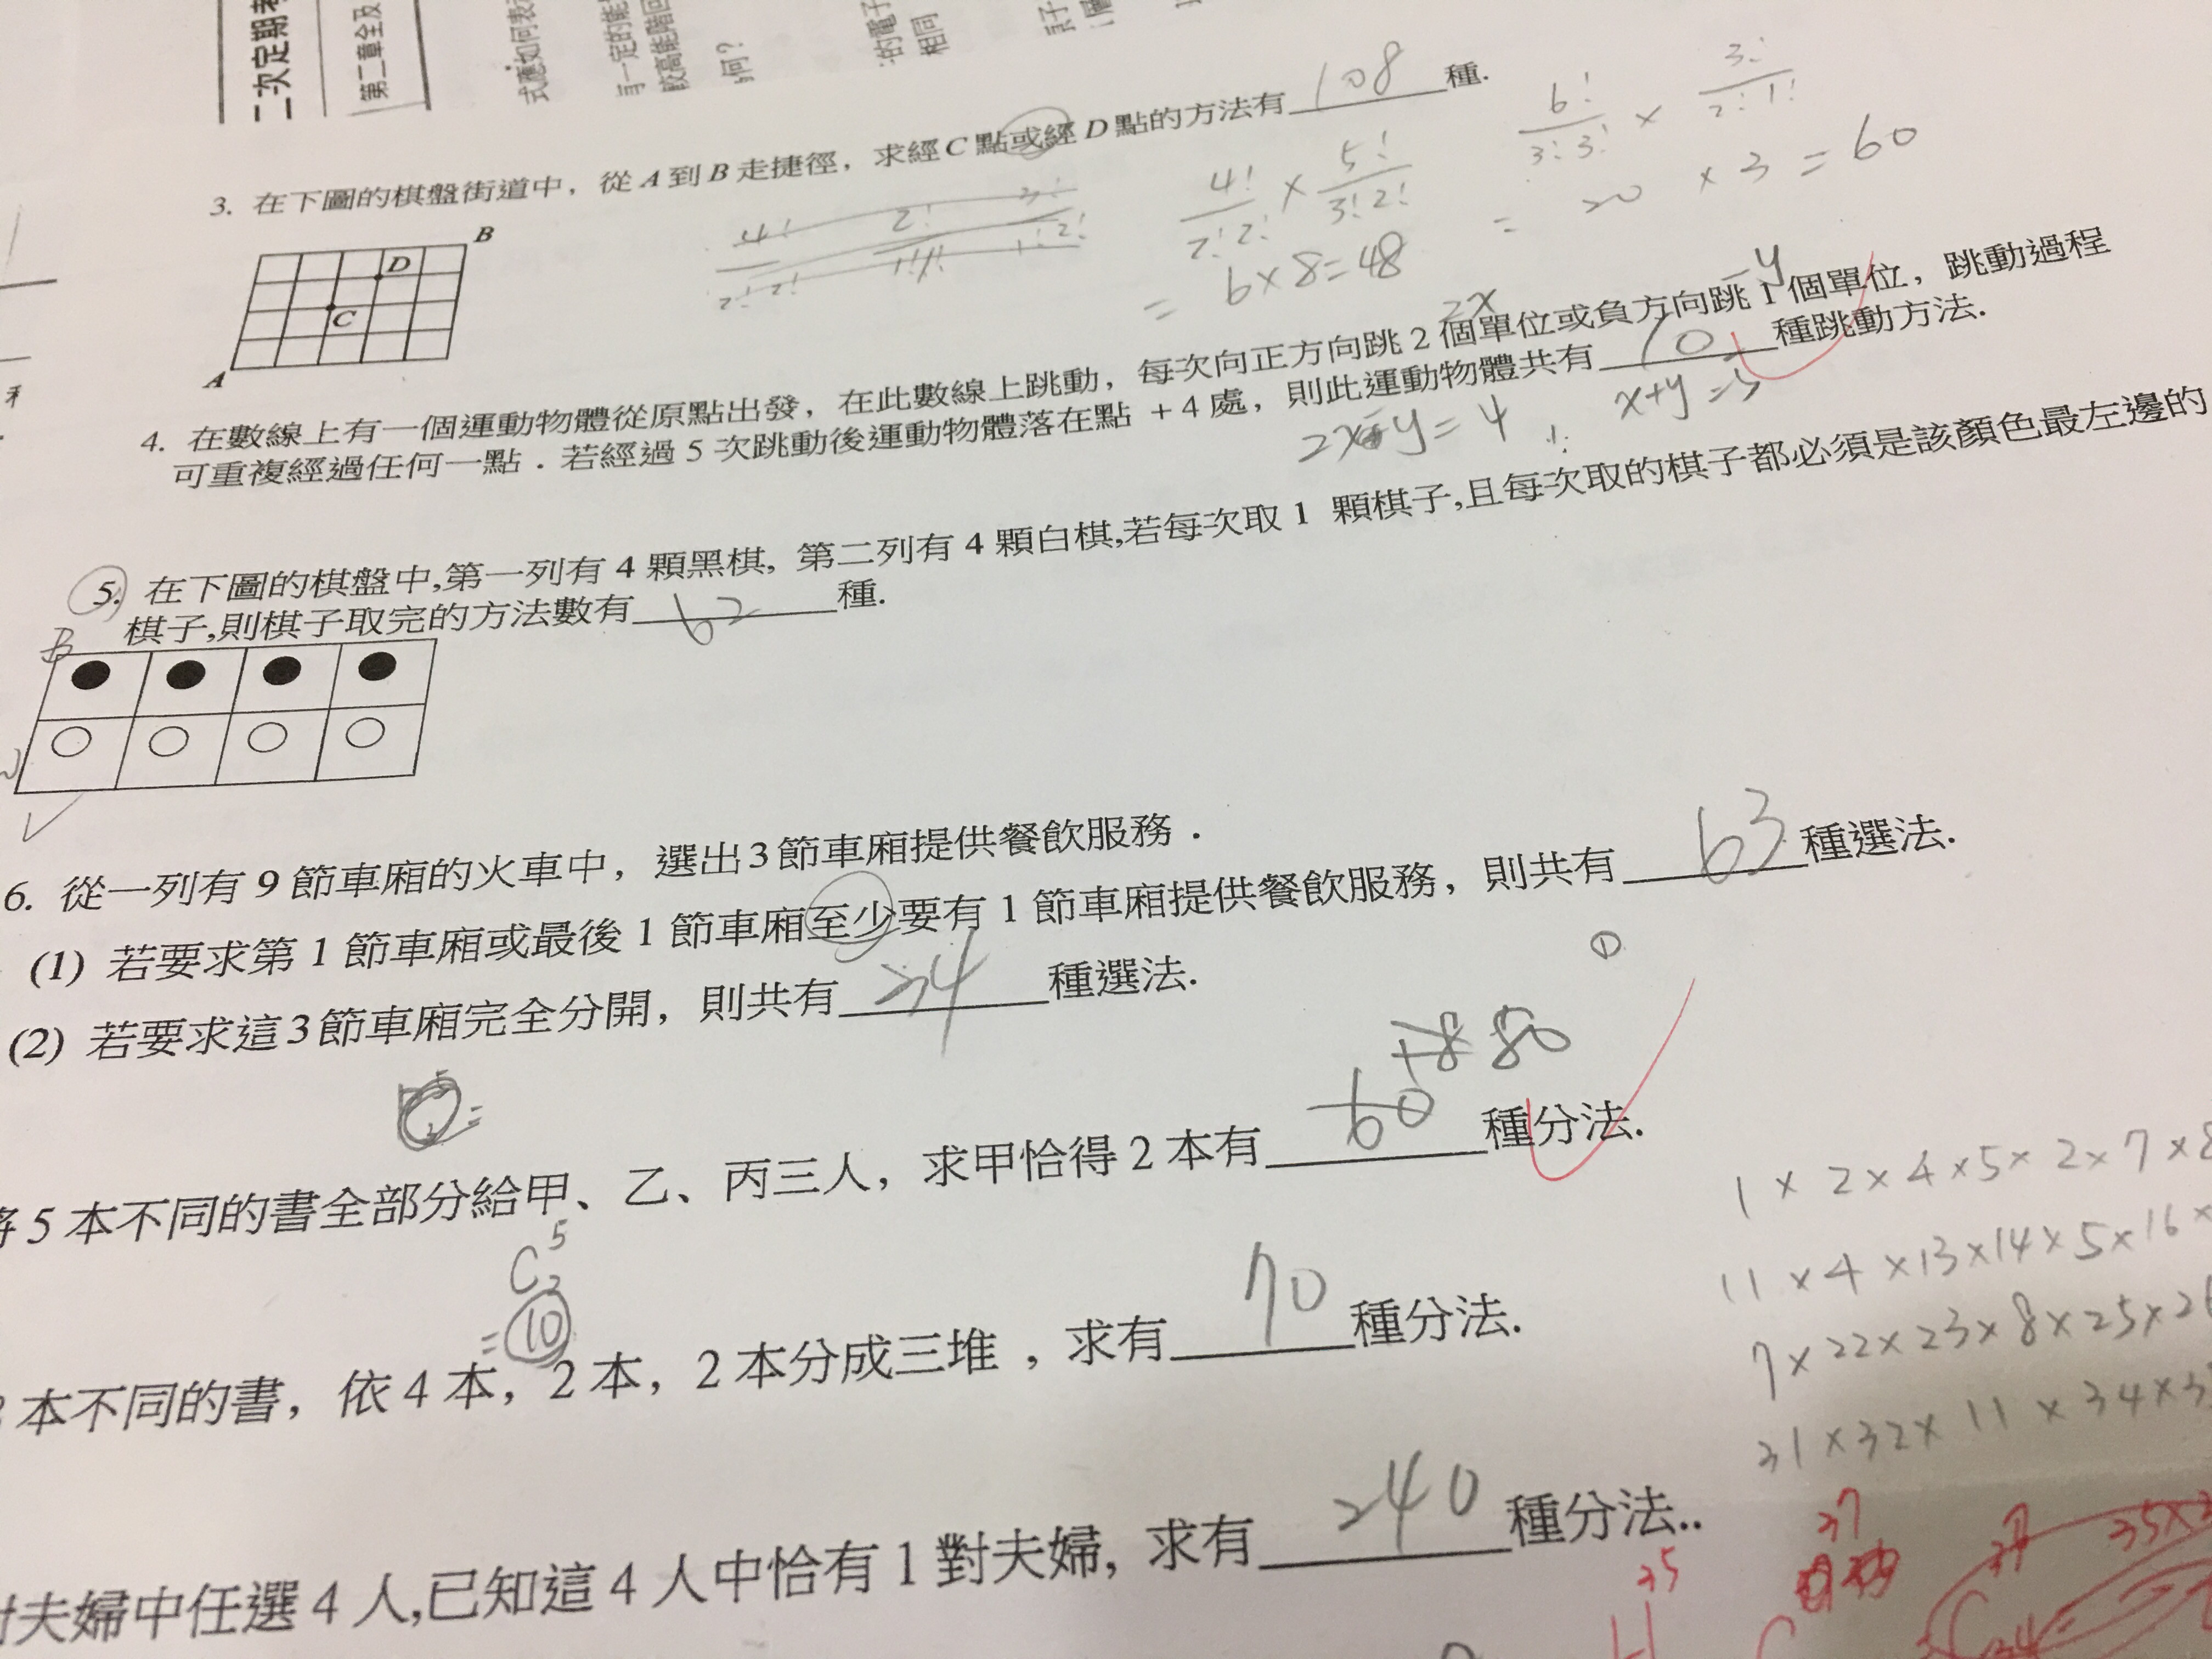 二次定期考
第二章全及
式應如何表示
何?
的電子
相同
3. 在下圖的棋盤街道中，從 A 到 B 走捷徑，求經 C 點或經 D 點的方法有 108 種.
B
D
C
A
4! 2! 3!
2! 2! 1!1! 1! 2!
4!/2!2! × 5!/3!2!
= 6×8=48
6!/3!3! × 3!/2!1!
= 20 × 3 = 60
2x -y
4. 在數線上有一個運動物體從原點出發，在此數線上跳動，每次向正方向跳 2 個單位或負方向跳 1 個單位，跳動過程
可重複經過任何一點．若經過 5 次跳動後運動物體落在點 +4 處，則此運動物體共有 10 種跳動方法.
2x-y=4 x+y=5
5. 在下圖的棋盤中,第一列有 4 顆黑棋, 第二列有 4 顆白棋,若每次取 1 顆棋子,且每次取的棋子都必須是該顏色最左邊的
棋子,則棋子取完的方法數有 62 種.
B
6. 從一列有 9 節車廂的火車中，選出 3 節車廂提供餐飲服務．
(1) 若要求第 1 節車廂或最後 1 節車廂至少要有 1 節車廂提供餐飲服務，則共有 63 種選法.
(2) 若要求這 3 節車廂完全分開，則共有 34 種選法.
80
將 5 本不同的書全部分給甲、乙、丙三人，求甲恰得 2 本有 60 種分法.
C 5 2
= 10
本不同的書，依 4 本，2 本，2 本分成三堆，求有 70 種分法.
1 × 2 × 4 × 5 × 2 × 7 × 8
11 × 4 × 13 × 14 × 5 × 16 ×
7 × 22 × 23 × 8 × 25 × 26
31 × 32 × 11 × 34 ×
對夫婦中任選 4 人,已知這 4 人中恰有 1 對夫婦, 求有 240 種分法..
37
35
H
C